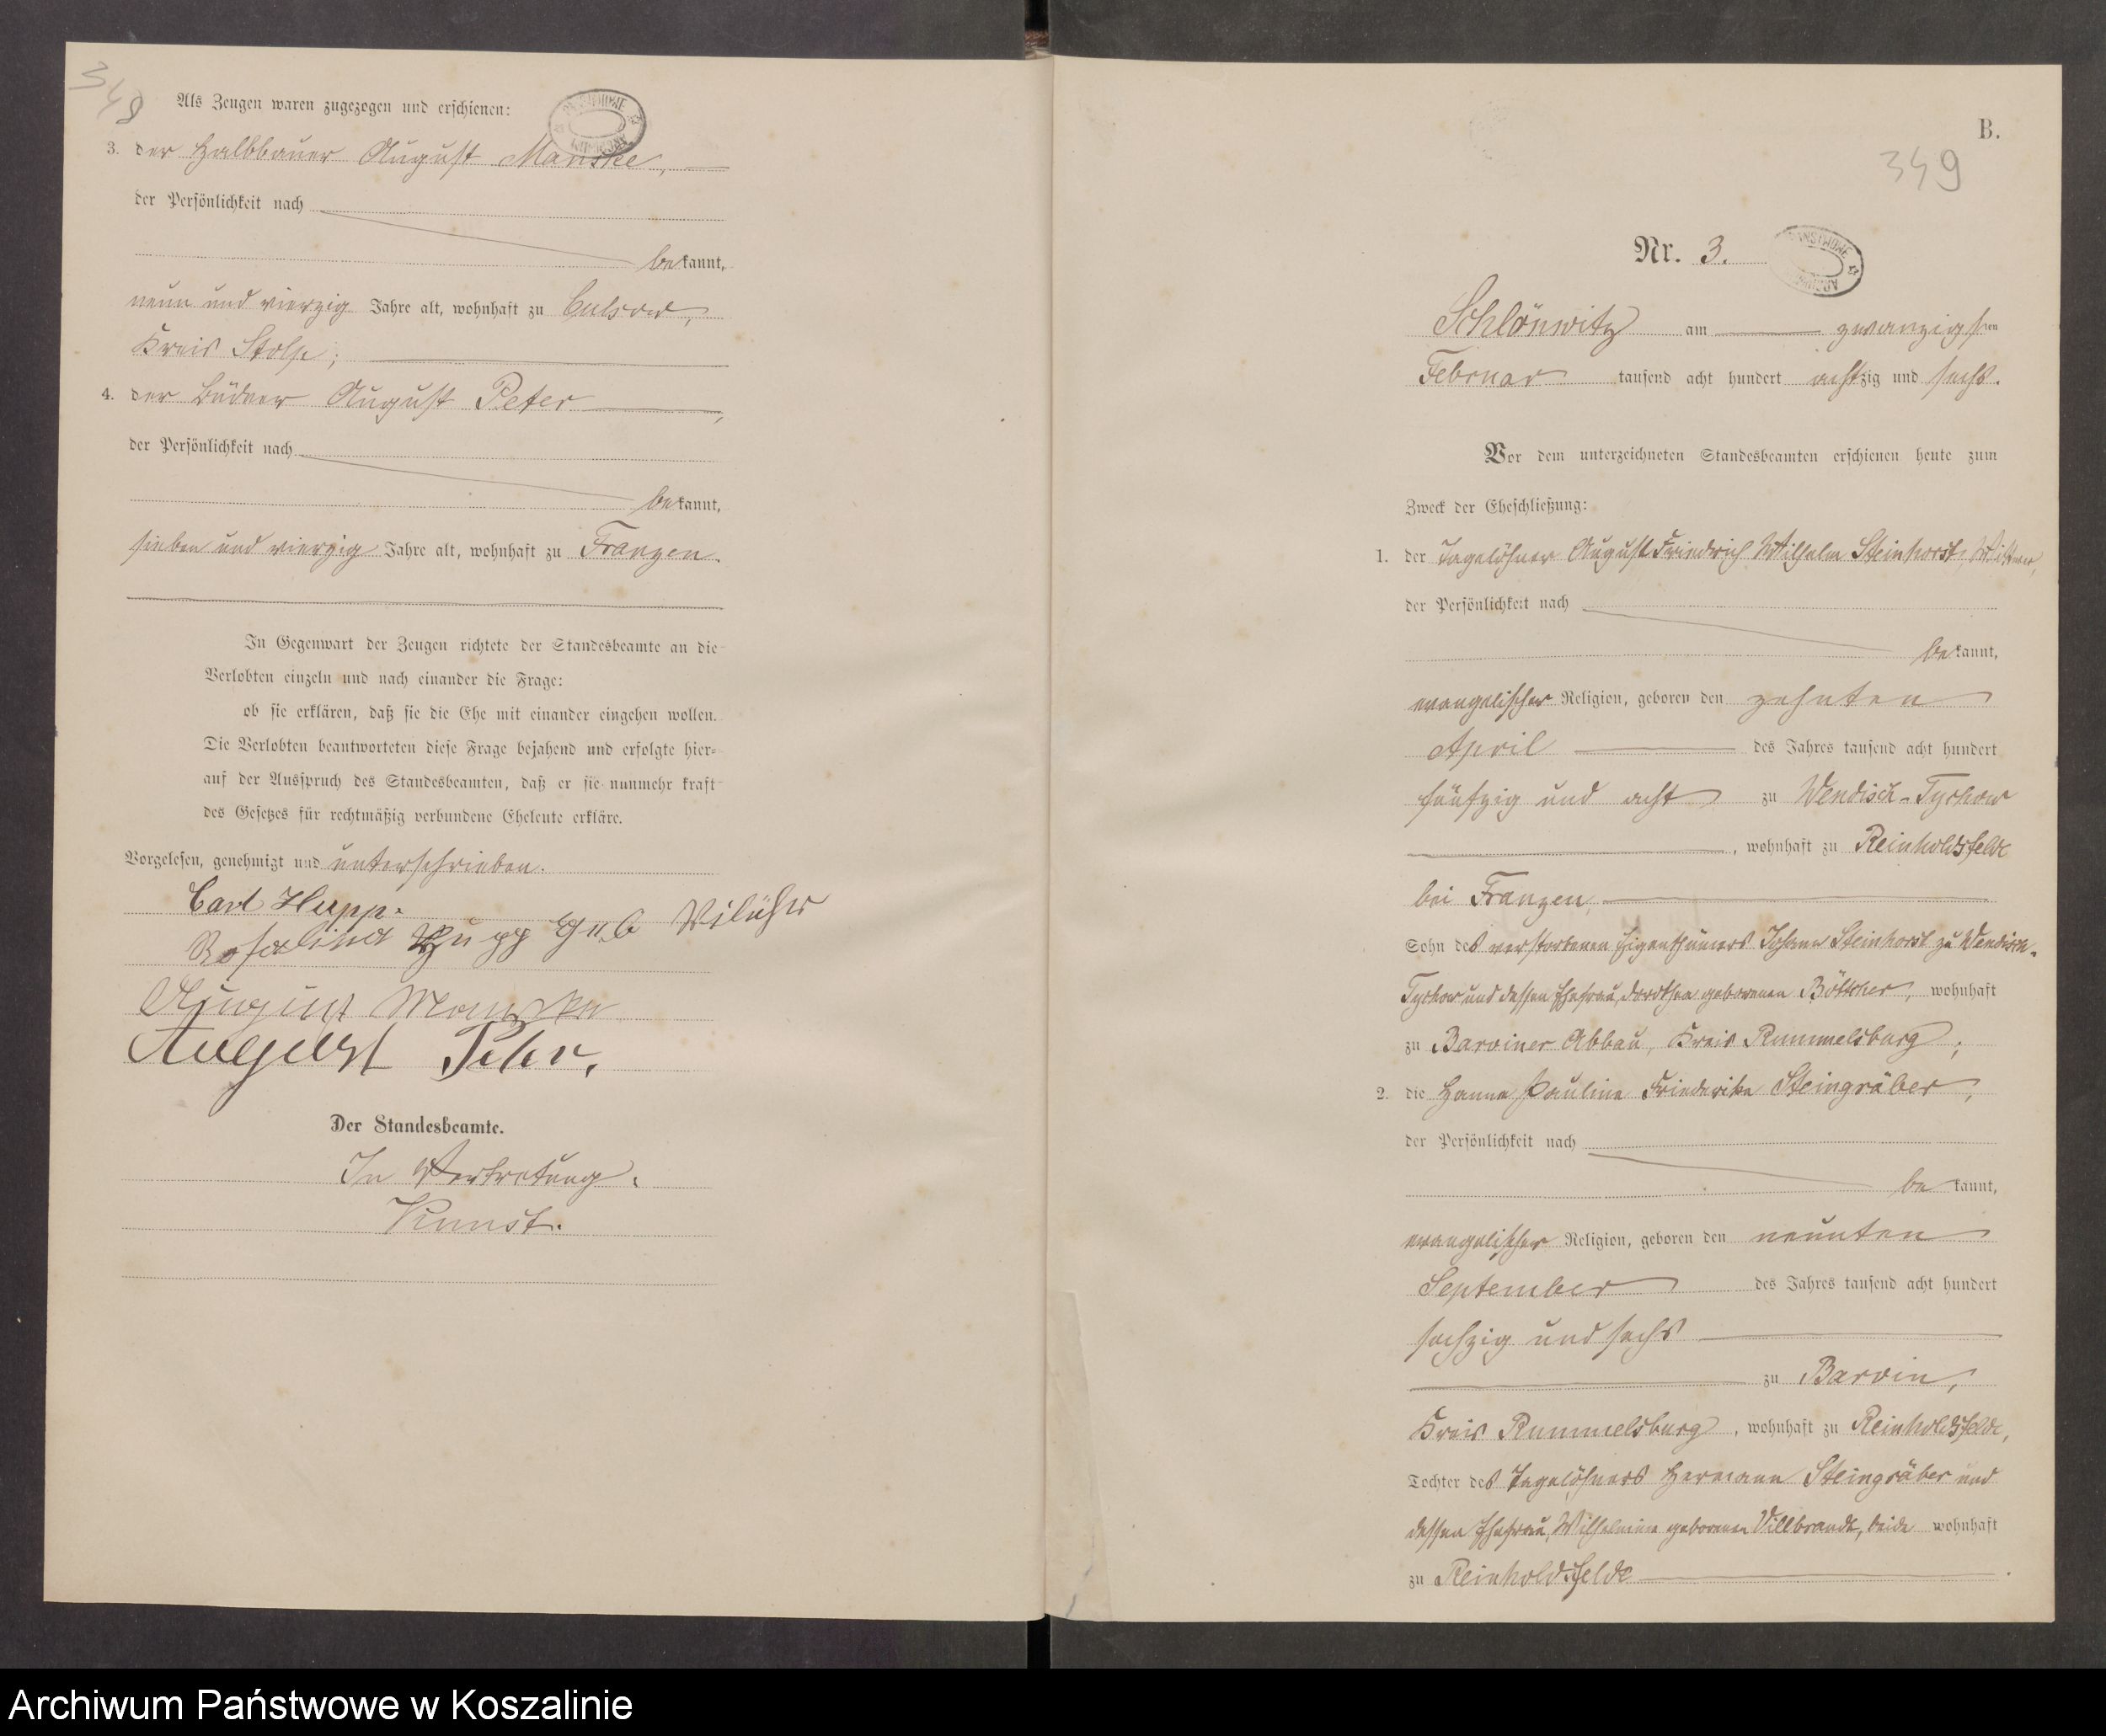 348
Als Zeugen waren zugezogen und erschienen:
3. der Halbbauer August Manske,
der Persönlichkeit nach
bekannt,
neun und vierzig Jahre alt, wohnhaft zu Culsow,
Kreis Stolp;
4. der Büdner August Peter,
der Persönlichkeit nach
bekannt,
sieben und vierzig Jahre alt, wohnhaft zu Franzen.
In Gegenwart der Zeugen richtete der Standesbeamte an die
Verlobten einzeln und nach einander die Frage:
ob sie erklären, daß sie die Ehe mit einander eingehen wollen.
Die Verlobten beantworteten diese Frage bejahend und erfolgte hier-
auf der Ausspruch des Standesbeamten, daß er sie nunmehr kraft
des Gesetzes für rechtmäßig verbundene Eheleute erkläre.
Vorgelesen, genehmigt und unterschrieben.
Carl Hupp.
Rosalina Hupp geb
August Manske
August Peter.
Der Standesbeamte.
In Vertretung.
Kunst.
B.
349
Nr. 3.
Schlönwitz am zwanzigsten
Februar tausend acht hundert achtzig und sechs.
Vor dem unterzeichneten Standesbeamten erschienen heute zum
Zweck der Eheschließung:
1. der Tagelöhner August Friedrich Wilhelm Steinhorst, Wittwer,
der Persönlichkeit nach
bekannt,
evangelischer Religion, geboren den zehnten
April des Jahres tausend acht hundert
fünfzig und acht zu Wendisch-Tychow
, wohnhaft zu Reinholdsfelde
bei Franzen,
Sohn des verstorbenen Eigenthümers Johann Steinhorst zu Wendisch-
Tychow und dessen Ehefrau, Dorothea geborenen Böttcher, wohnhaft
zu Barviner Abbau, Kreis Rummelsburg;
2. die Hanna Pauline Friederike Steingräber,
der Persönlichkeit nach
bekannt,
evangelischer Religion, geboren den neunten
September des Jahres tausend acht hundert
sechzig und sechs
zu Barvin,
Kreis Rummelsburg, wohnhaft zu Reinholdsfelde,
Tochter des Tagelöhners Hermann Steingräber und
dessen Ehefrau, Wilhelmine geborenen Villbrandt, beide wohnhaft
zu Reinholdsfelde.
Archiwum Państwowe w Koszalinie